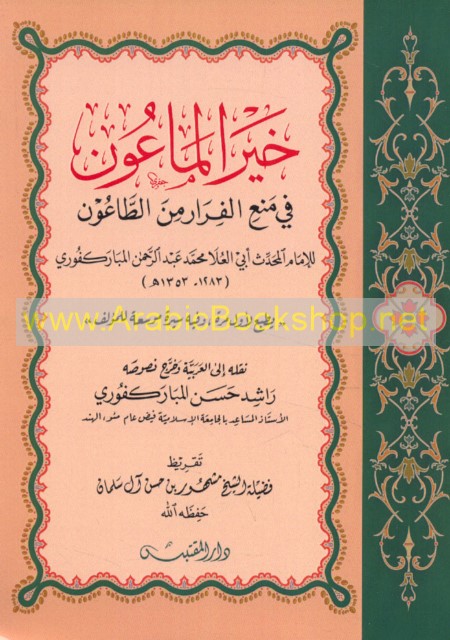 خَيْرُ الماعُون
في مَنع الفِرَار مِنَ الطَّاعُوْن
للإمَام المحدّث أبي العُلا محمّد عَبْد الرَّحمٰن المبَاركفُوري
(١٢٨٣ - ١٣٥٣هـ)
www.ArabicBookshop.net
نقله إلى العَربيَّة وَخرَّج نصُوصَه
رَاشِد حَسَن المبَاركفُوري
الأستاذ المسَاعد بالجامعَة الإسلاميّة فيض عام مئو، الهند
تقريظ
فضيلة الشيخ مشهور بن حسن آل سلمان
حَفِظَه الله
دار المقتبس